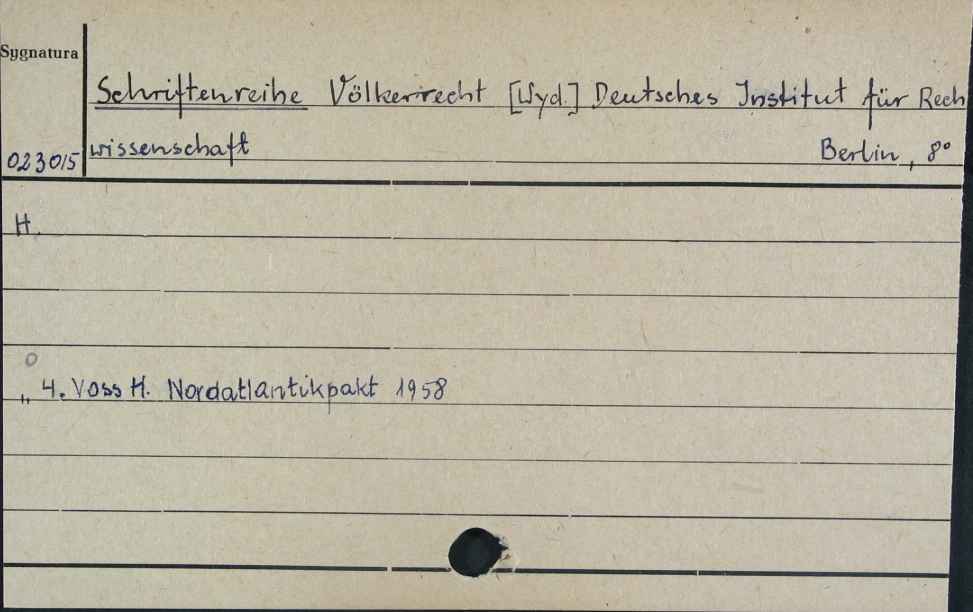 Sygnatura
Schriftenreihe Völkerrecht [Wyd.] Deutsches Institut für Rech
023015 wissenschaft Berlin, 8°
H.
o
„ 4. Voss H. Nordatlantikpakt 1958